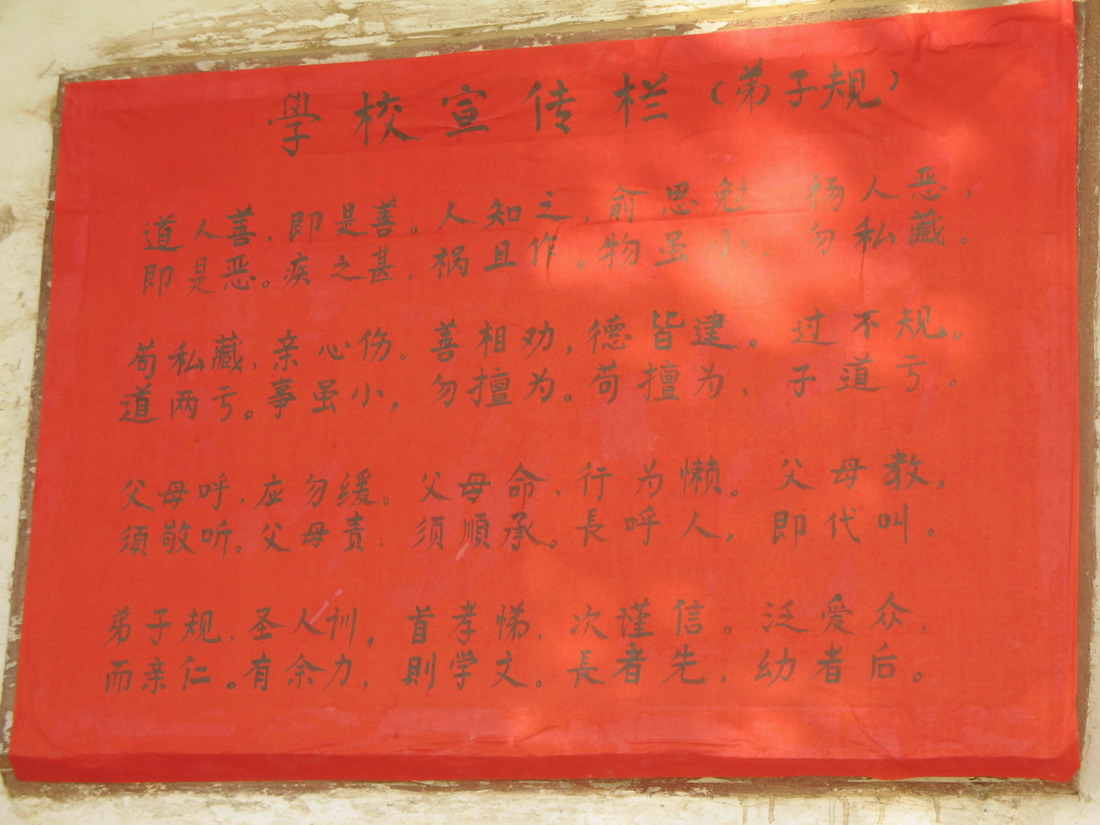 學校宣传栏（弟子规）
道人善，即是善。人知之，俞思勉 杨人恶，
即是恶。疾之甚，祸且作。物虽小， 勿私藏。
苟私藏，亲心伤。善相劝，德皆建。过不规。
道两亏。事虽小，勿擅为。苟擅为，子道亏。
父母呼，应勿缓。父母命，行为懒。父母教，
须敬听。父母责，须順承。長呼人，即代叫。
弟子规，圣人训。首孝悌，次谨信。泛爱众，
而亲仁。有余力，則学文。長者先，幼者后。